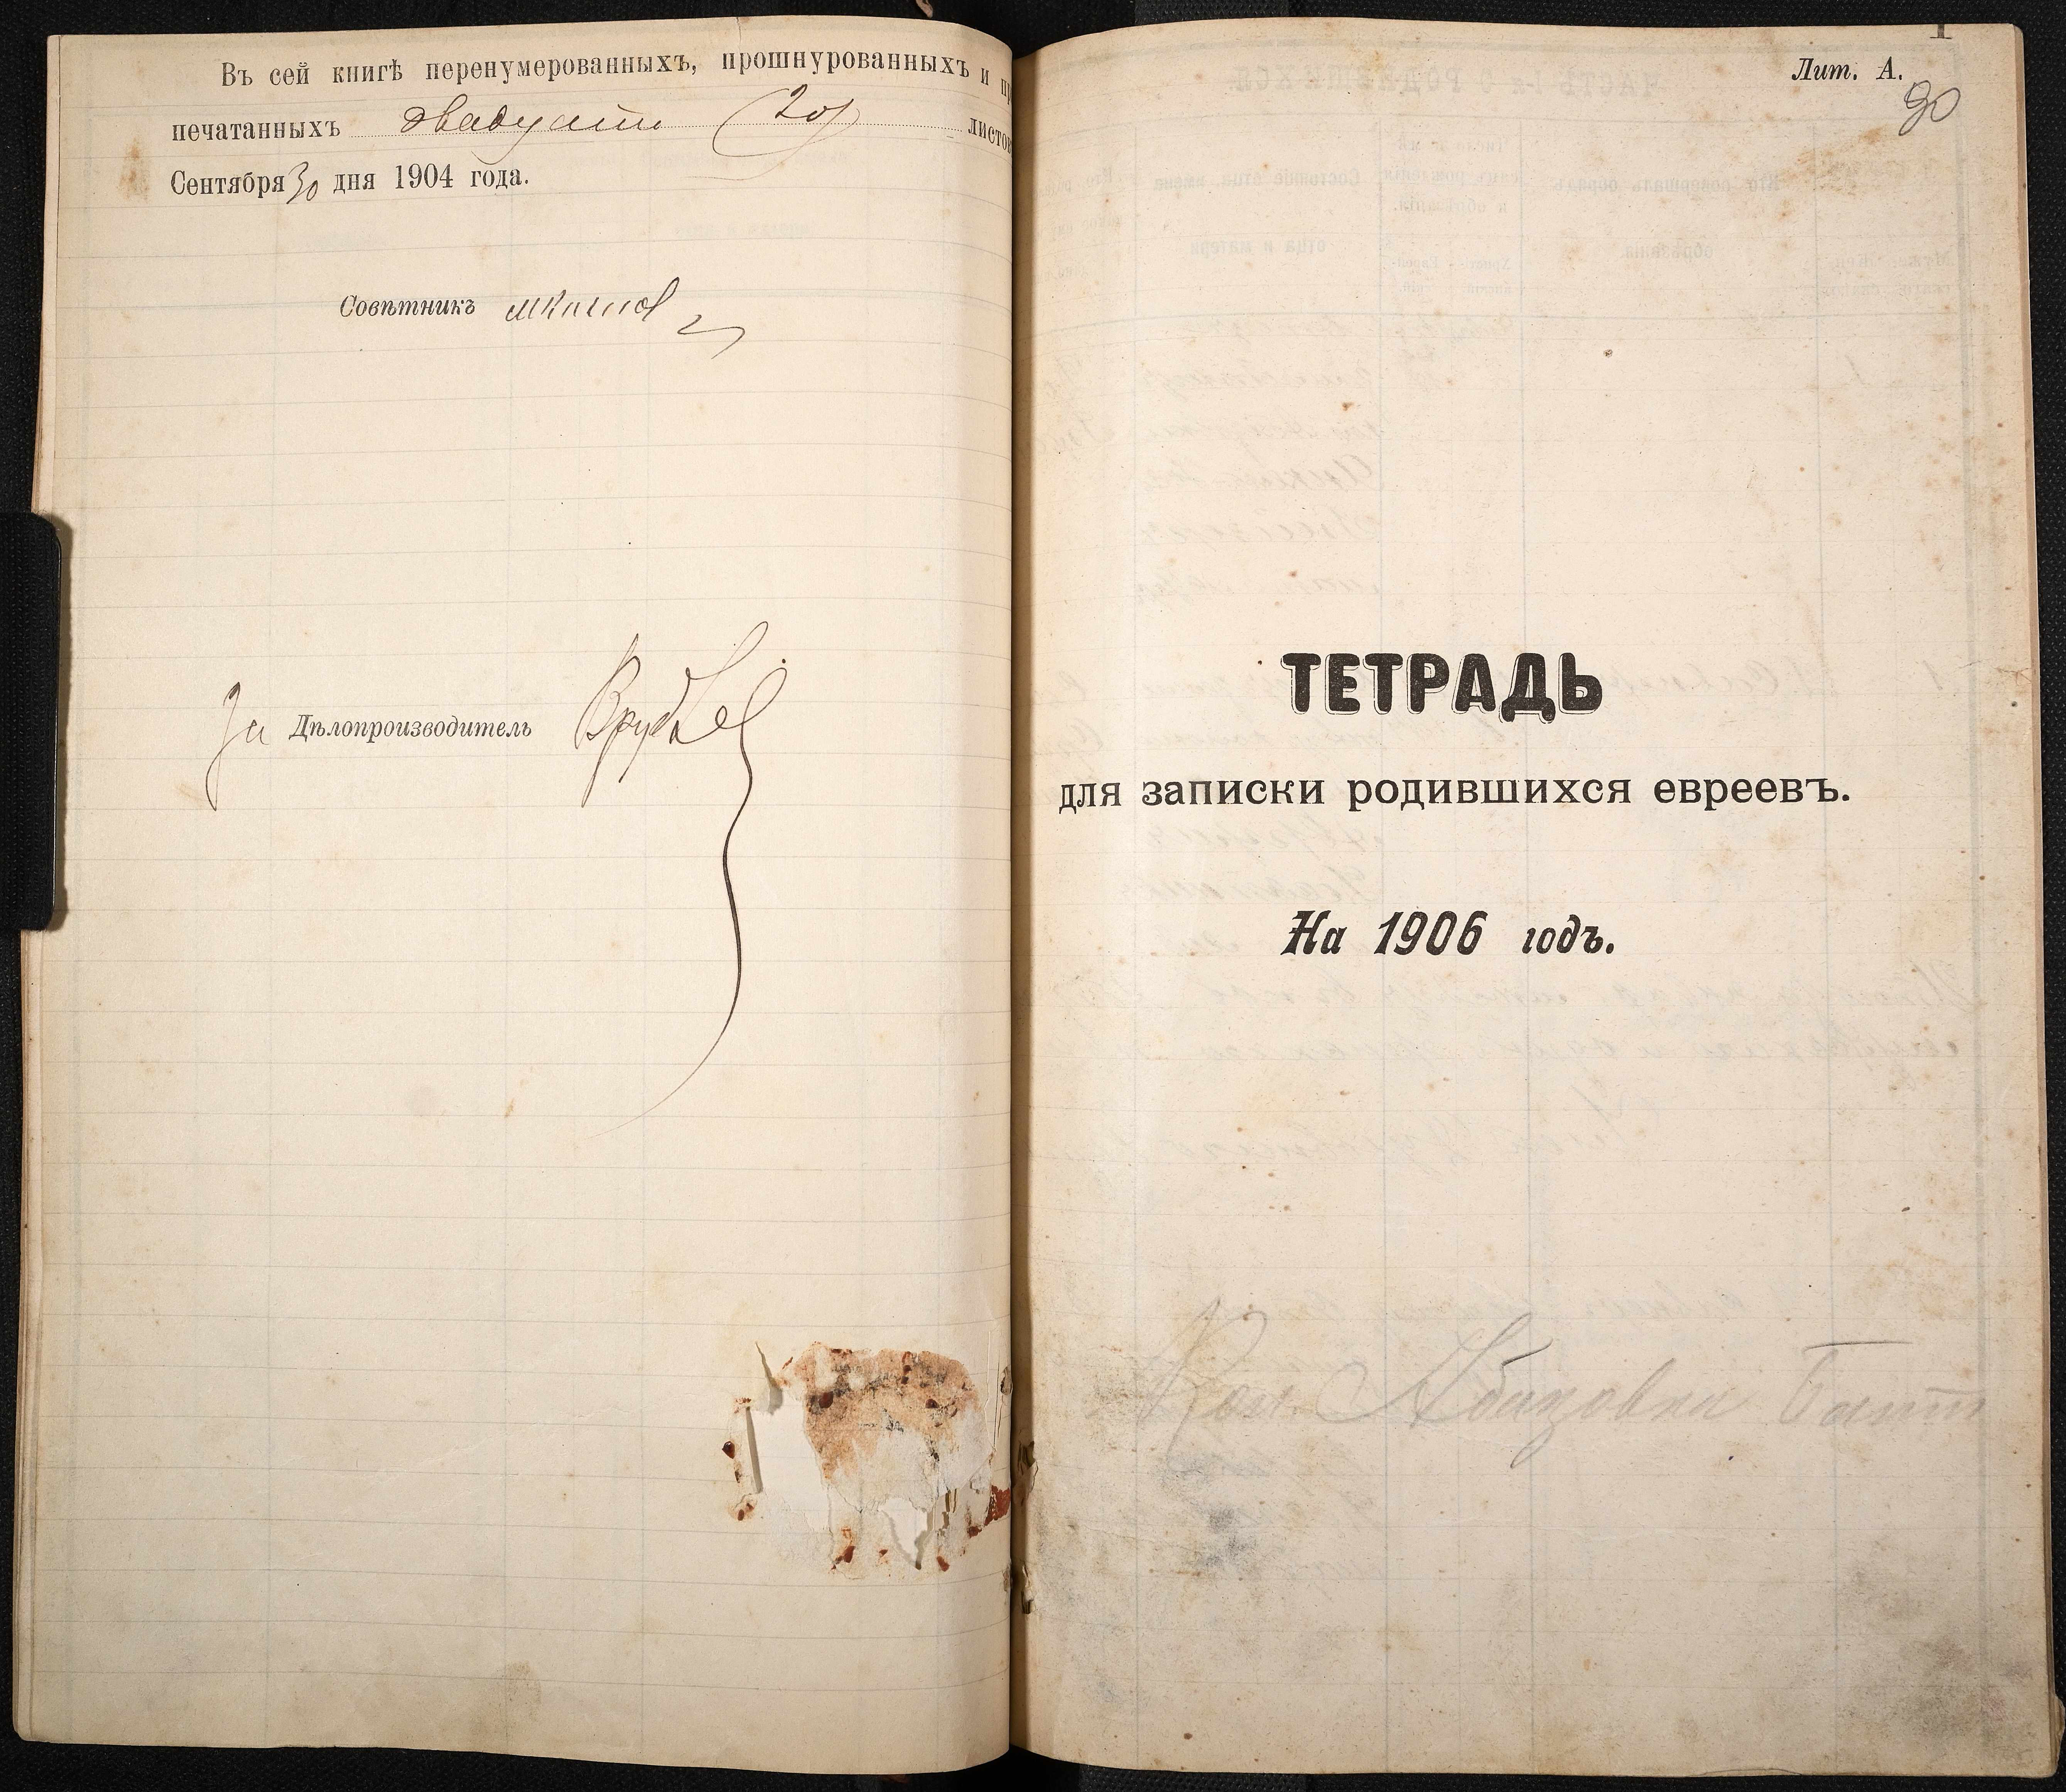 Въ сей книгѣ перенумерованныхъ, прошнурованныхъ и
печатанныхъ двадцати (20) листов
Сентября 30 дня 1904 года.
Совѣтникъ
За Дѣлопроизводитель
Лит. А.
90
ТЕТРАДЬ
для записки родившихся евреевъ.
На 1906 годъ.
Кол. Абазовка